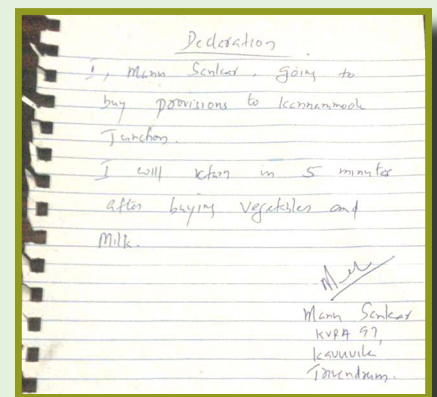 Declaration
I, Manu Sankar, going to
buy provisions to Kannammoola
Junction.
I will return in 5 minutes
after buying vegetables and
Milk.
Manu Sankar
KVRA 97,
Trivendrum.